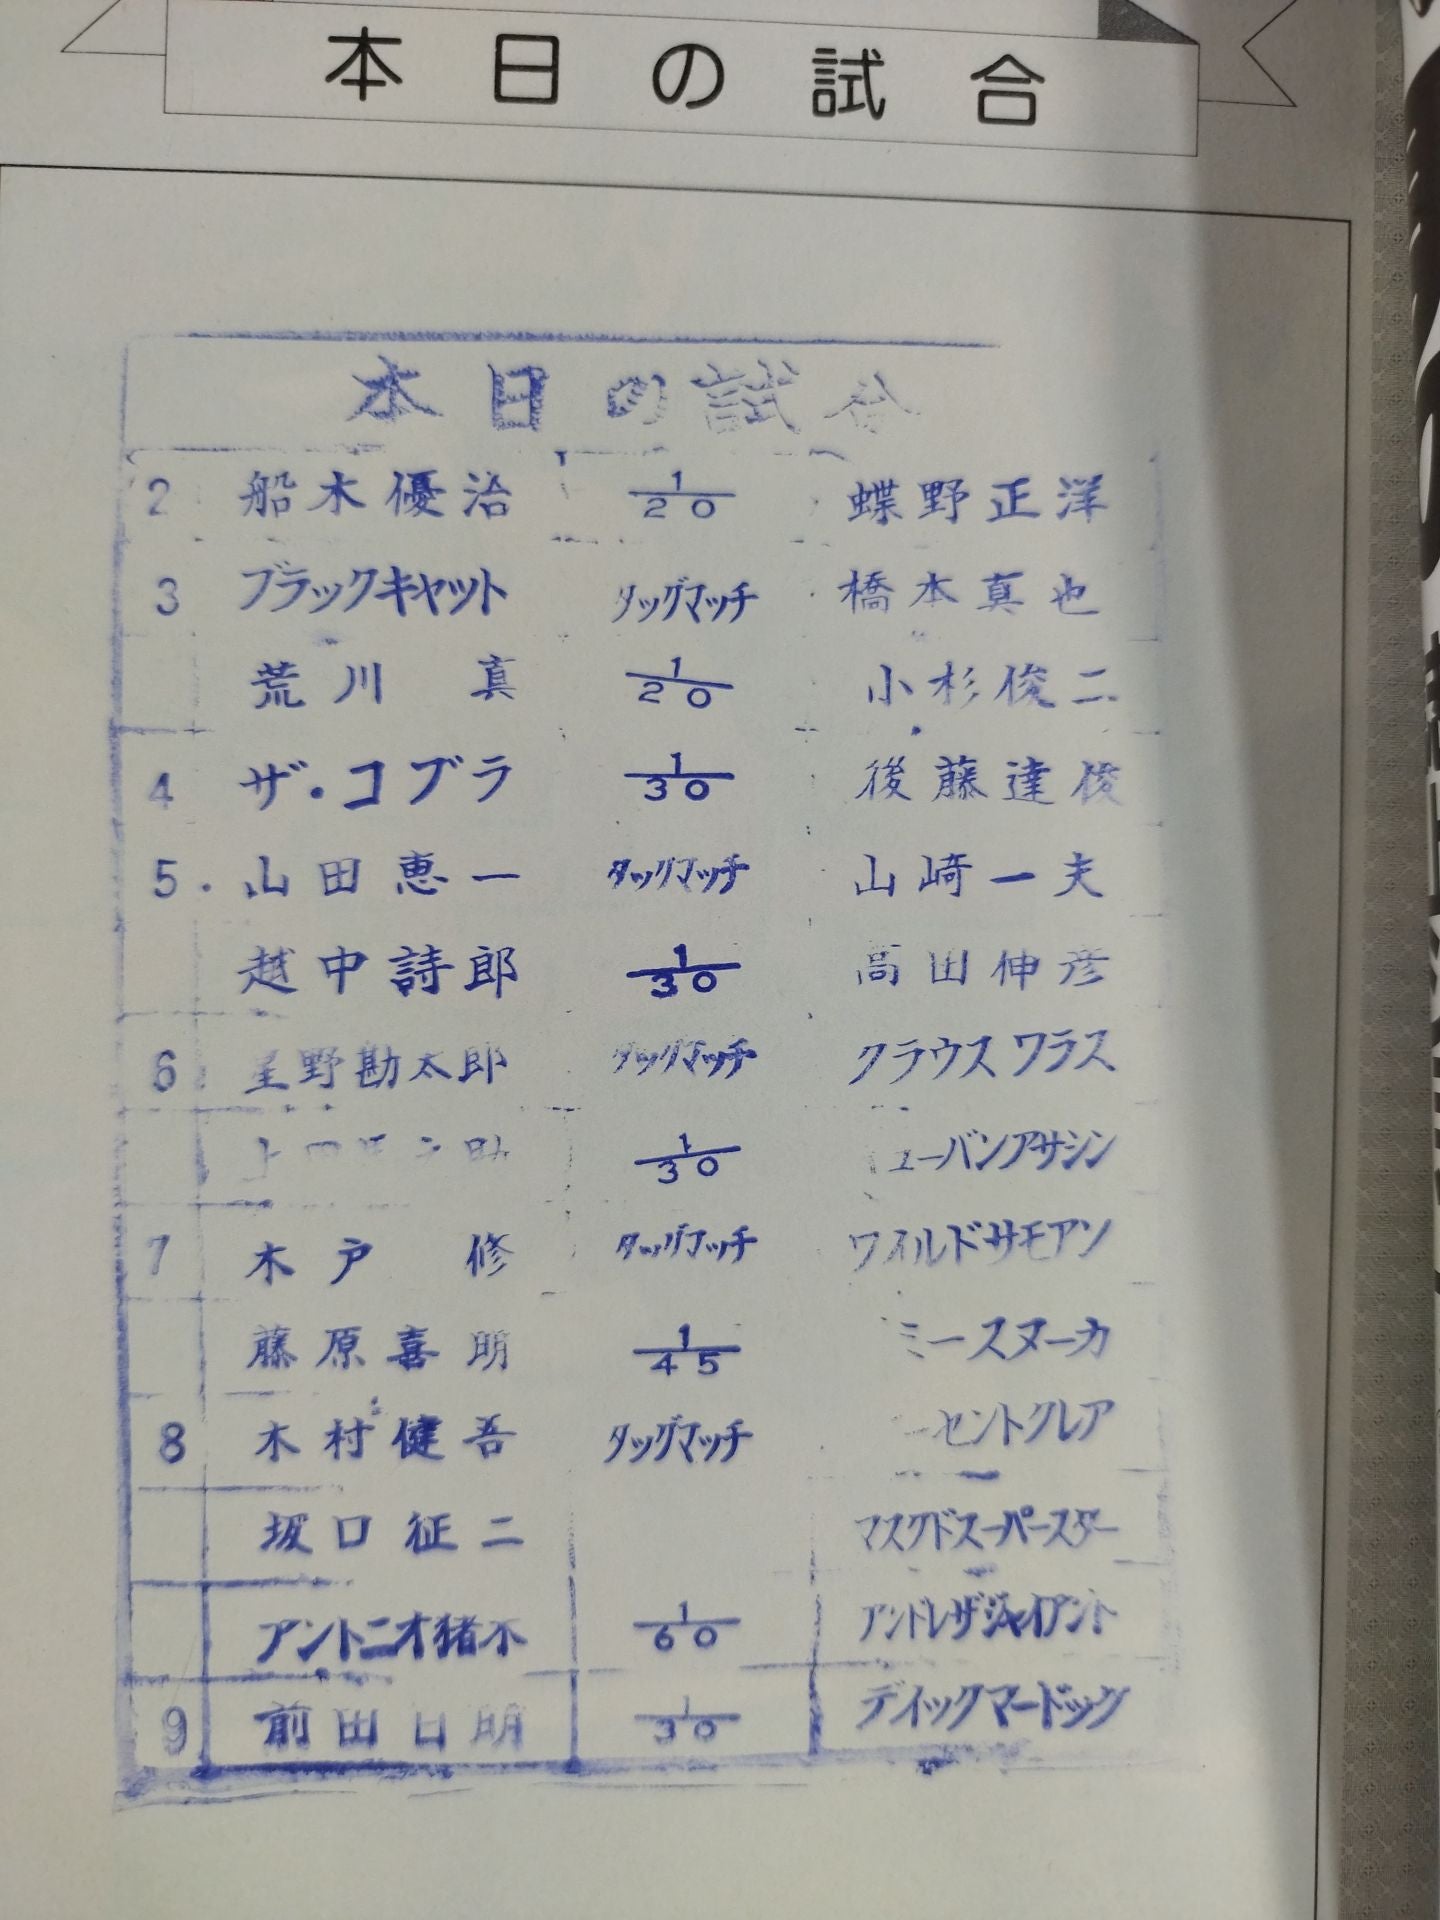 本日の試合
本日の試合
2 船木優治 1/20 蝶野正洋
3 ブラックキャット タッグマッチ 橋本真也
荒川真 1/20 小杉俊二
4 ザ・コブラ 1/30 後藤達俊
5. 山田恵一 タッグマッチ 山崎一夫
越中詩郎 1/30 高田伸彦
6 星野勘太郎 タッグマッチ クラウスワラス
1/30 ューバンアサシン
7 木戸修 タッグマッチ ワイルドサモアン
藤原喜明 1/45 ミースヌーカ
8 木村健吾 タッグマッチ セントクレア
坂口征二 マスクドスーパースター
アントニオ猪木 1/60 アンドレザジャイアント
9 前田日明 1/30 デイックマードック